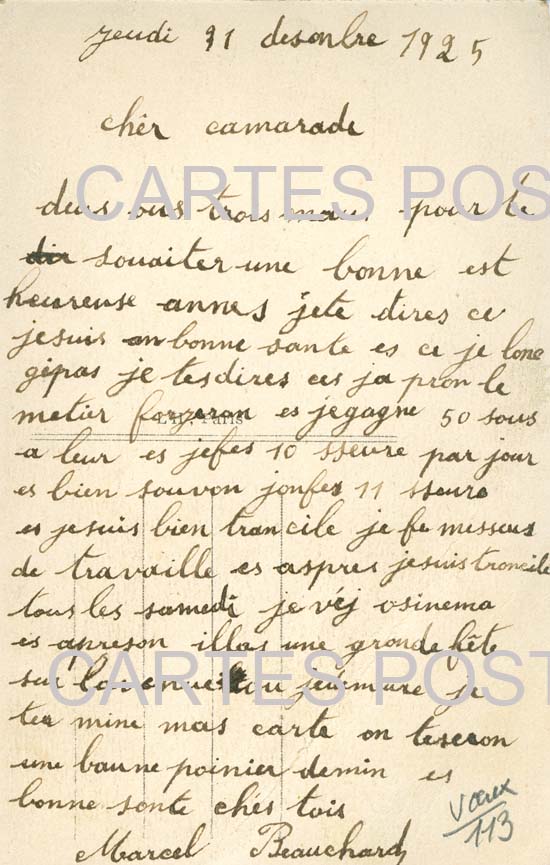 jeudi 31 desonbre 1925
chêr camarade
CARTES POST
deus ous trois maus pour te
dir souaiter une bonne est
heureuse annes jete dires ce
jesuis an bonne sante es ce je lone
gepas je tesdires ces ja pron le
metier forzeron es jegagne 50 sous
L'H. Paris
a leur es jefes 10 sseure par jour
es bien souvon jonfes 11 sseure
es jesuis bien trancile je fe messeus
de travaille es aspres jesuis troncile
tous les samedi je vej osinema
es apreson illas une gronde fête
CARTES POST
sur lavenue ou jedemure je
ter mine mas carte on teseron
une baune poinier demin es
bonne sonte chés tois
Marcel Beauchard
113